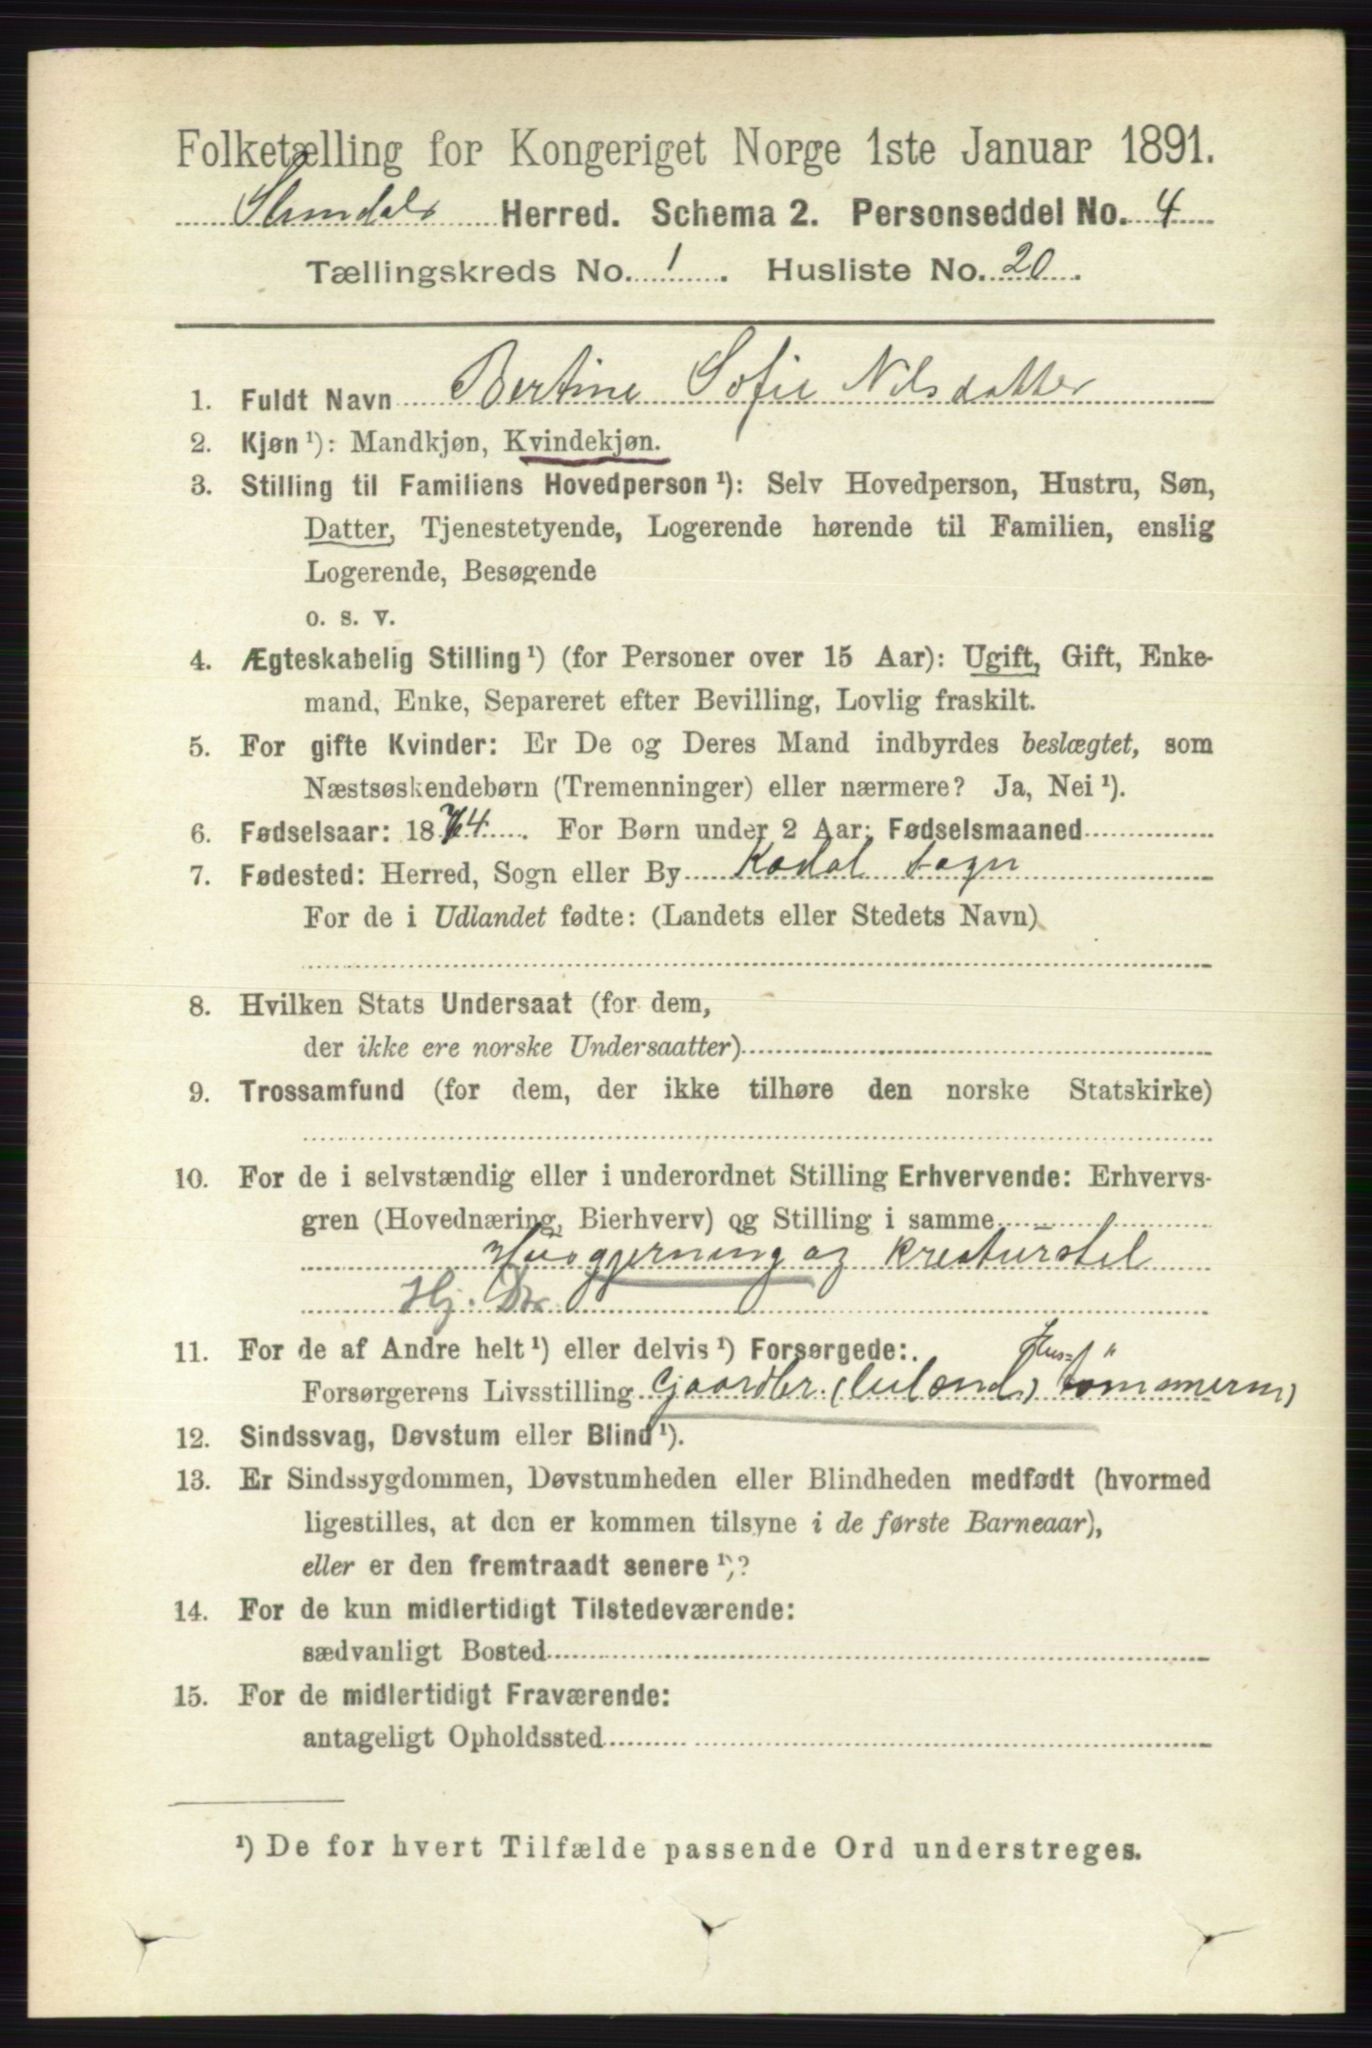 Folketælling for Kongeriget Norge 1ste Januar 1891.
Herred. Schema 2. Personseddel No. 4
Tællingskreds No. 1. Husliste No. 20.
1. Fuldt Navn Bertine Sofie Nilsdatter
2. Kjøn ¹): Mandkjøn, Kvindekjøn.
3. Stilling til Familiens Hovedperson ¹): Selv Hovedperson, Hustru, Søn,
Datter, Tjenestetyende, Logerende hørende til Familien, enslig
Logerende, Besøgende
o. s. v.
4. Ægteskabelig Stilling ¹) (for Personer over 15 Aar): Ugift, Gift, Enke-
mand, Enke, Separeret efter Bevilling, Lovlig fraskilt.
5. For gifte Kvinder: Er De og Deres Mand indbyrdes beslægtet, som
Næstsøskendebørn (Tremenninger) eller nærmere? Ja, Nei ¹).
6. Fødselsaar: 1874. For Børn under 2 Aar: Fødselsmaaned
7. Fødested: Herred, Sogn eller By Kodal sogn
For de i Udlandet fødte: (Landets eller Stedets Navn)
8. Hvilken Stats Undersaat (for dem,
der ikke ere norske Undersaatter)
9. Trossamfund (for dem, der ikke tilhøre den norske Statskirke)
10. For de i selvstændig eller i underordnet Stilling Erhvervende: Erhvervs-
gren (Hovednæring, Bierhverv) og Stilling i samme
Husgjerning og kreaturstel
Hj. Dtr.
11. For de af Andre helt ¹) eller delvis ¹) Forsørgede:
Hus-
Forsørgerens Livsstilling Gaardbr. (selveiend) tømmerm,
12. Sindssvag, Døvstum eller Blind ¹).
13. Er Sindssygdommen, Døvstumheden eller Blindheden medfødt (hvormed
ligestilles, at den er kommen tilsyne i de første Barneaar),
eller er den fremtraadt senere ¹)?
14. For de kun midlertidigt Tilstedeværende:
sædvanligt Bosted
15. For de midlertidigt Fraværende:
antageligt Opholdssted
¹) De for hvert Tilfælde passende Ord understreges.